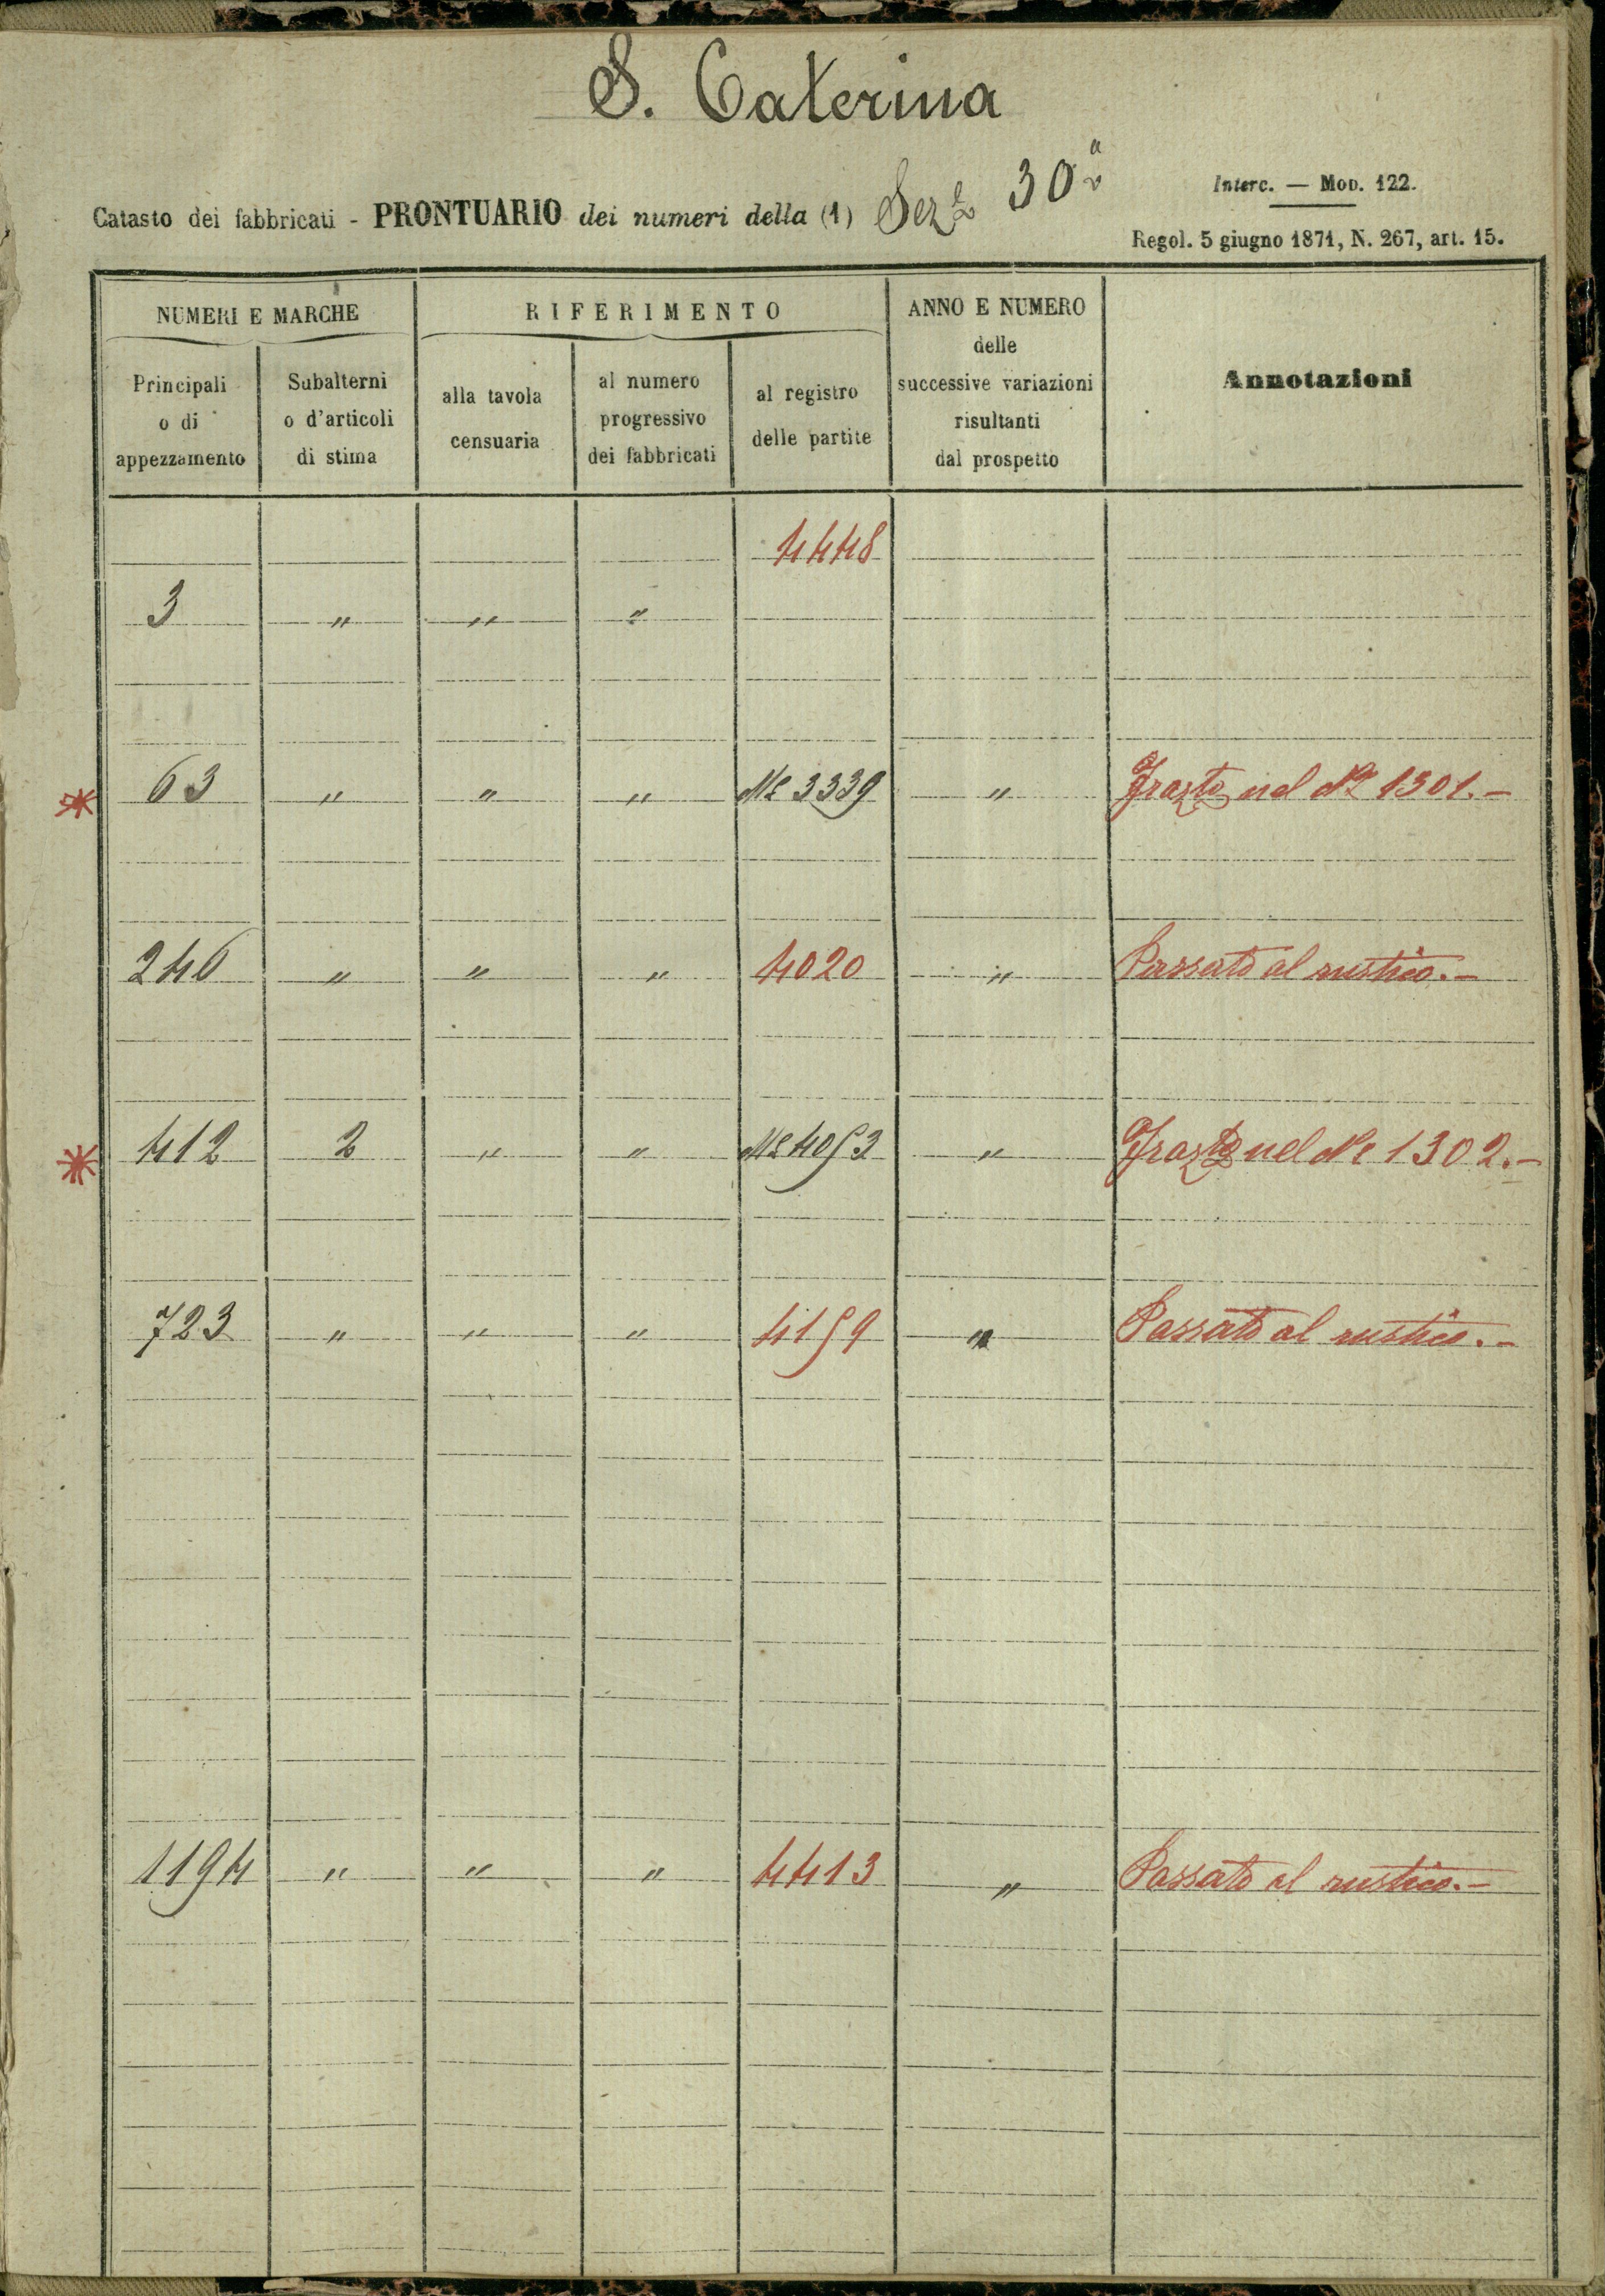 S. Caterina
Catasto dei fabbricati - PRONTUARIO dei numeri della (1) Sez.e 30a
Interc. — Mod. 122.
Regol. 5 giugno 1871, N. 267, art. 15.
NUMERI E MARCHE
RIFERIMENTO
ANNO E NUMERO
delle
successive variazioni
risultanti
dal prospetto
Annotazioni
Principali
o di
appezzamento
Subalterni
o d'articoli
di stima
alla tavola
censuaria
al numero
progressivo
dei fabbricati
al registro
delle partite
4448
3 " " "
* 63 " " " 3339 " nel No 1301.—
246 " " " 4020 " Passato al rustico.—
* 412 2 " " 4053 " nel No 1302.—
723 " " " 4159 " Passato al rustico.—
1194 " " " 4413 " Passato al rustico.—